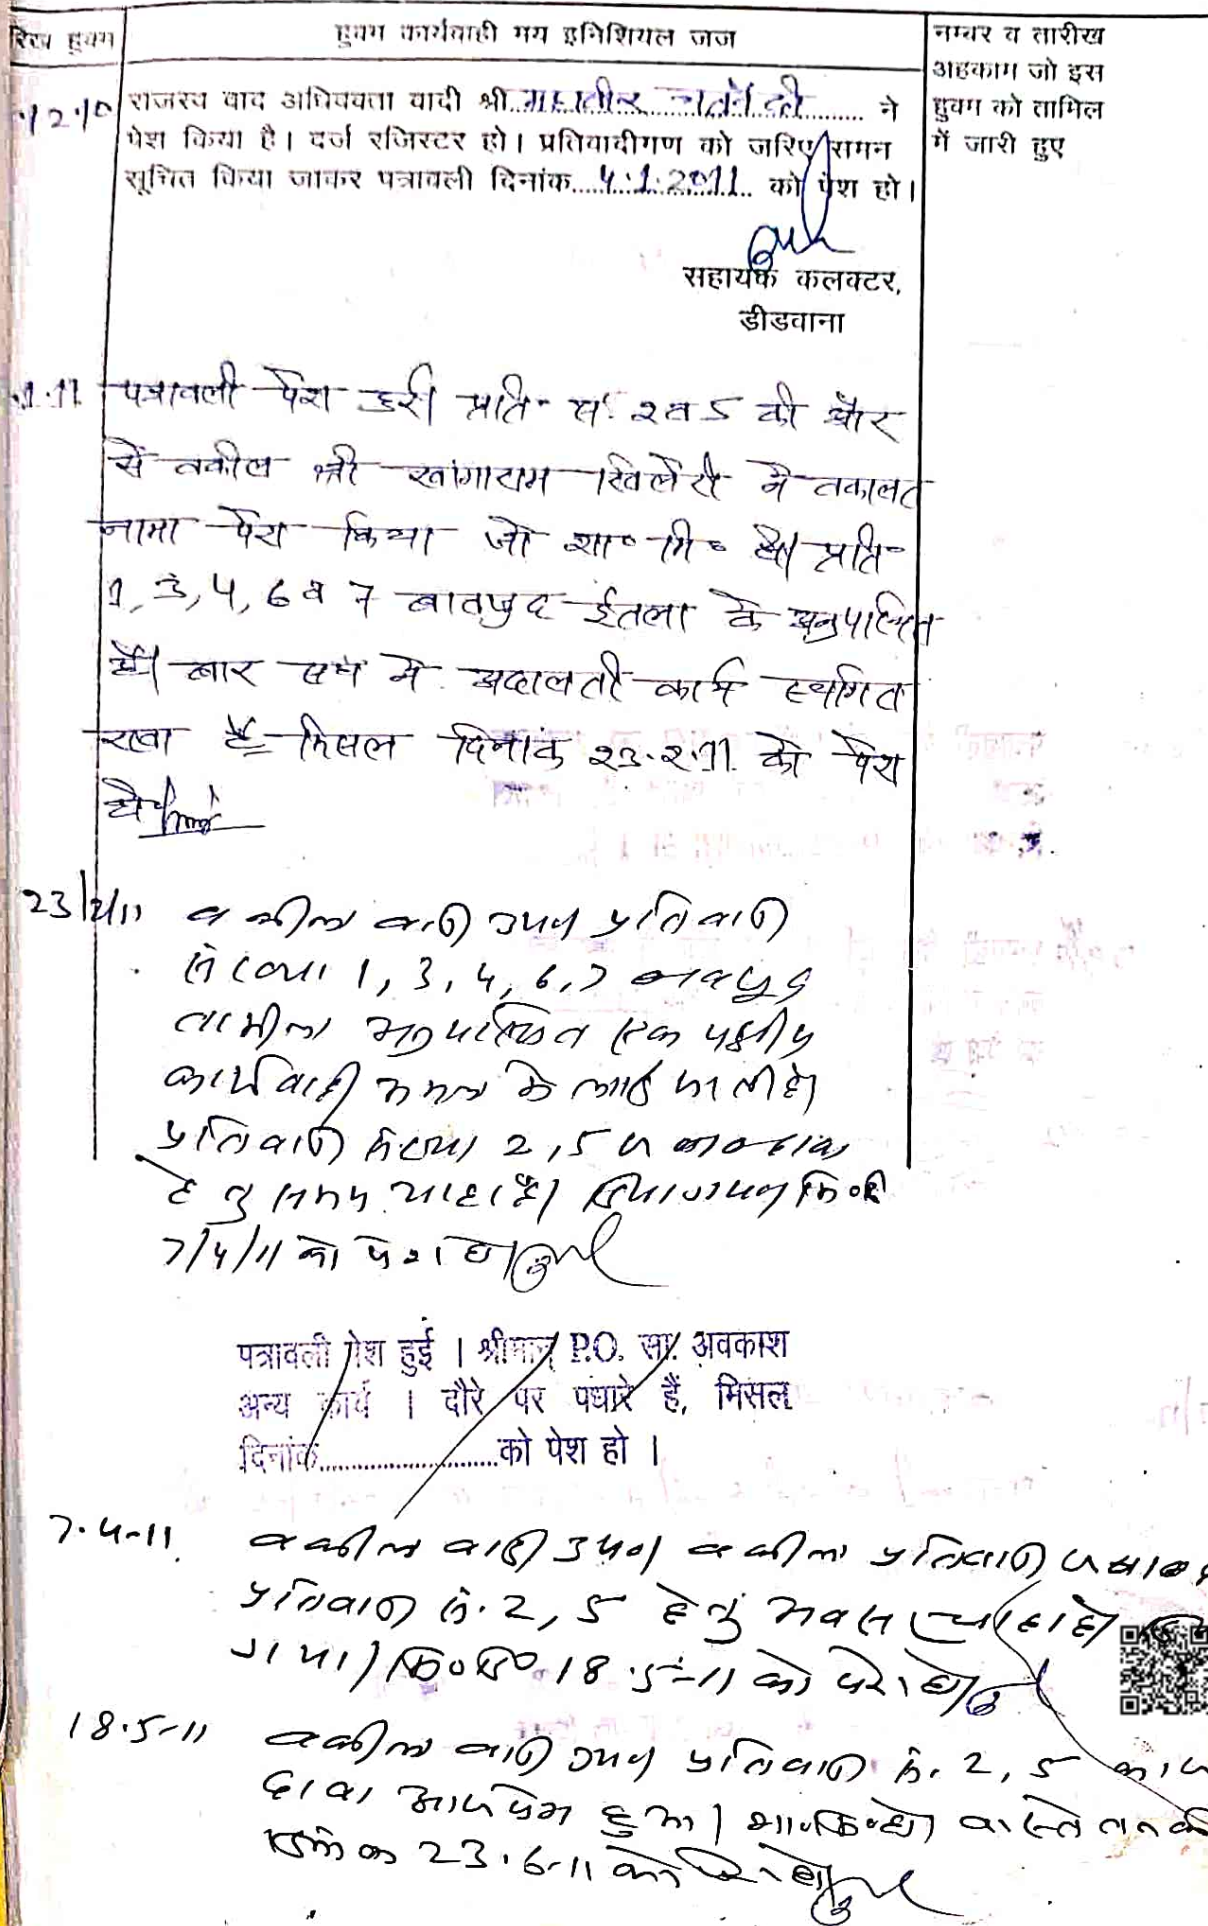 रिख हुक्म
हुक्म कार्यवाही मय इनिशियल जज
नम्बर व तारीख
अहकाम जो इस
हुक्म को तामिल
में जारी हुए
12.10
राजस्व वाद अधिवक्ता वादी श्री महावीर ने
पेश किया है। दर्ज रजिस्टर हो। प्रतिवादीगण को जरिए समन
सूचित किया जाकर पत्रावली दिनांक 4.1.2011 को पेश हो।
सहायक कलक्टर,
डीडवाना
.1.11 पत्रावली पेश हुई। प्रति. सं. 2 व 5 की ओर
से वकील श्री ने वकालत
नामा पेश किया जो शा० मि० हो। प्रति०
1, 3, 4, 6 व 7 बावजुद ईतला के अनुपस्थित
है। बार संघ ने अदालती कार्य स्थगित
रखा है मिसल दिनांक 23.2.11 को पेश
हो।
23/2/11 वकील वादी उपण प्रतिवादी
संख्या 1, 3, 4, 6, 7 बावजुद
तामील अनुपस्थित एक पक्षीय
कार्यवाही अमल मे लाई जाती है।
प्रतिवादी संख्या 2, 5 जवाब दावा
हेतु समय चाहा है।
7/4/11 को पेश हो।
पत्रावली पेश हुई । श्रीमान् P.O. सा. अवकाश
अन्य कार्य । दौरे पर पधारे हैं, मिसल
दिनांक..............................को पेश हो ।
7.4-11 वकील वादी उपण वकील प्रतिवादी
प्रतिवादी सं. 2, 5 हेतु चाहा है
गया। 18.5-11 को पेश हो।
18.5-11 वकील वादी उपण प्रतिवादी सं. 2, 5 का
दावा पेश हुआ। वास्ते
23.6-11 को पेश हो।